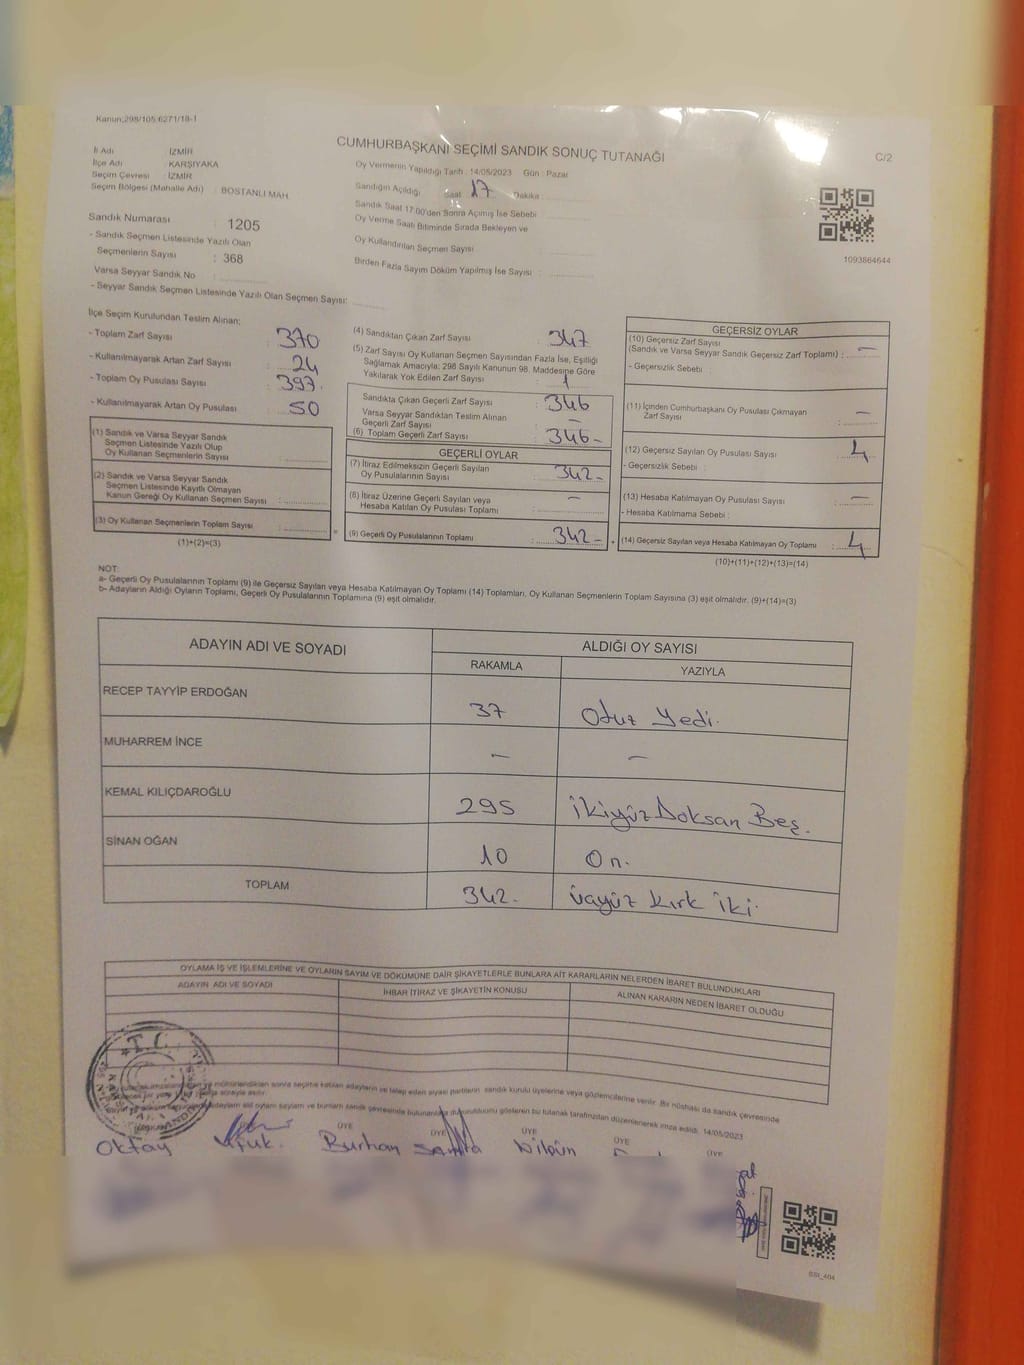 Kanun;298/105;6271/18-1
CUMHURBAŞKANI SEÇİMİ SANDIK SONUÇ TUTANAĞI
C/2
İl Adı : İZMİR
İlçe Adı : KARŞIYAKA
Seçim Çevresi : İZMİR
Seçim Bölgesi (Mahalle Adı) : BOSTANLI MAH.
Sandık Numarası : 1205
- Sandık Seçmen Listesinde Yazılı Olan
Seçmenlerin Sayısı : 368
Varsa Seyyar Sandık No :
- Seyyar Sandık Seçmen Listesinde Yazılı Olan Seçmen Sayısı:
Oy Vermenin Yapıldığı Tarih : 14/05/2023 Gün : Pazar
Sandığın Açıldığı Saat 17 Dakika
Sandık Saat 17:00'den Sonra Açımış İse Sebebi
Oy Verme Saati Bitiminde Sırada Bekleyen ve
Oy Kullandırılan Seçmen Sayısı
Birden Fazla Sayım Döküm Yapılmış İse Sayısı :
1093864644
İlçe Seçim Kurulundan Teslim Alınan;
- Toplam Zarf Sayısı : 370
- Kullanılmayarak Artan Zarf Sayısı : 24
- Toplam Oy Pusulası Sayısı : 397.
- Kullanılmayarak Artan Oy Pusulası : 50
(1) Sandık ve Varsa Seyyar Sandık
Seçmen Listesinde Yazılı Olup
Oy Kullanan Seçmenlerin Sayısı :
(2) Sandık ve Varsa Seyyar Sandık
Seçmen Listesinde Kayıtlı Olmayan
Kanun Gereği Oy Kullanan Seçmen Sayısı :
(3) Oy Kullanan Seçmenlerin Toplam Sayısı :
(1)+(2)=(3)
(4) Sandıktan Çıkan Zarf Sayısı : 347
(5) Zarf Sayısı Oy Kullanan Seçmen Sayısından Fazla İse, Eşitliği
Sağlamak Amacıyla; 298 Sayılı Kanunun 98. Maddesine Göre
Yakılarak Yok Edilen Zarf Sayısı : 1
Sandıkta Çıkan Geçerli Zarf Sayısı : 346
Varsa Seyyar Sandıktan Teslim Alınan
Geçerli Zarf Sayısı : –
(6) Toplam Geçerli Zarf Sayısı : 346-
GEÇERLİ OYLAR
(7) İtiraz Edilmeksizin Geçerli Sayılan
Oy Pusulalarının Sayısı : 342-
(8) İtiraz Üzerine Geçerli Sayılan veya
Hesaba Katılan Oy Pusulası Toplamı : –
(9) Geçerli Oy Pusulalarının Toplamı : 342-
GEÇERSİZ OYLAR
(10) Geçersiz Zarf Sayısı
(Sandık ve Varsa Seyyar Sandık Geçersiz Zarf Toplamı) : –
- Geçersizlik Sebebi :
(11) İçinden Cumhurbaşkanı Oy Pusulası Çıkmayan
Zarf Sayısı : –
(12) Geçersiz Sayılan Oy Pusulası Sayısı : 4
- Geçersizlik Sebebi :
(13) Hesaba Katılmayan Oy Pusulası Sayısı : –
- Hesaba Katılmama Sebebi :
(14) Geçersiz Sayılan veya Hesaba Katılmayan Oy Toplamı : 4
(10)+(11)+(12)+(13)=(14)
NOT:
a- Geçerli Oy Pusulalarının Toplamı (9) ile Geçersiz Sayılan veya Hesaba Katılmayan Oy Toplamı (14) Toplamları, Oy Kullanan Seçmenlerin Toplam Sayısına (3) eşit olmalıdır. (9)+(14)=(3)
b- Adayların Aldığı Oyların Toplamı, Geçerli Oy Pusulalarının Toplamına (9) eşit olmalıdır.
ADAYIN ADI VE SOYADI ALDIĞI OY SAYISI
RAKAMLA YAZIYLA
RECEP TAYYİP ERDOĞAN 37 Otuz Yedi.
MUHARREM İNCE – –
KEMAL KILIÇDAROĞLU 295 İkiyüz Doksan Beş.
SİNAN OĞAN 10 On.
TOPLAM 342. üçyüz kırk iki.
OYLAMA İŞ VE İŞLEMLERİNE VE OYLARIN SAYIM VE DÖKÜMÜNE DAİR ŞİKAYETLERLE BUNLARA AİT KARARLARIN NELERDEN İBARET BULUNDUKLARI
ADAYIN ADI VE SOYADI İHBAR İTİRAZ VE ŞİKAYETİN KONUSU ALINAN KARARIN NEDEN İBARET OLDUĞU
T.C.
mühürlendikten sonra seçime katılan adayların ve talep eden siyasi partilerin sandık kurulu üyelerine veya gözlemcilerine verilir. Bir nüshası da sandık çevresinde
tarafımızdan düzenlenerek imza edildi. 14/05/2023
ÜYE ÜYE ÜYE ÜYE ÜYE
Oktay Ufuk. Burhan Nilgün